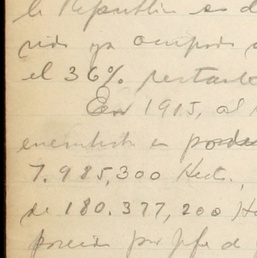 la República es d
rido ya ocupado
el 36% restante
En 1915, al
encontraba en poder
7.985,300 Hect.,
de 180.377,200 H
poseida por jefe d